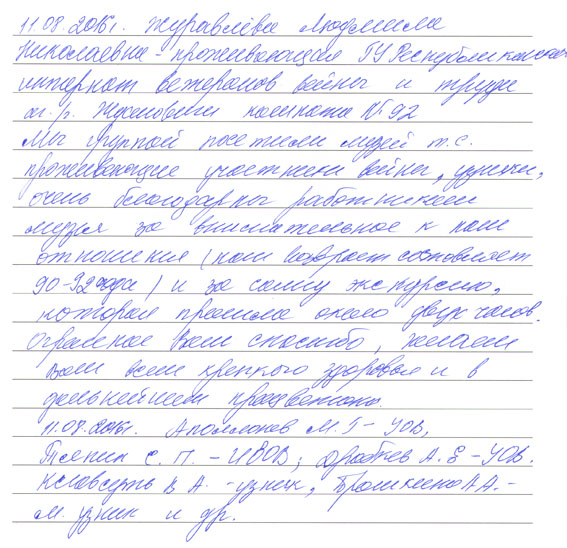 11.08.2016г. Журавлёва Людмила
Николаевна - проживающая ГУ Республиканский
интернат ветеранов войны и труда
к. п. Ждановичи комната № 92
Мы группой посетили музей т.с.
проживающие участники войны, узники,
очень благодарны работникам
музея за внимательное к нам
отношения (наш возраст составляет
90-92 года) и за саму экскурсию,
которая прошла около двух часов.
Огромное Вам спасибо, желаем
вам всем крепкого здоровья и в
дальнейшем процветания.
11.08.2016г. М. Г - УОВ,
С. П. - ИВОВ; А. Е - УОВ.
В А. - узник, А. -
м. узник и др.